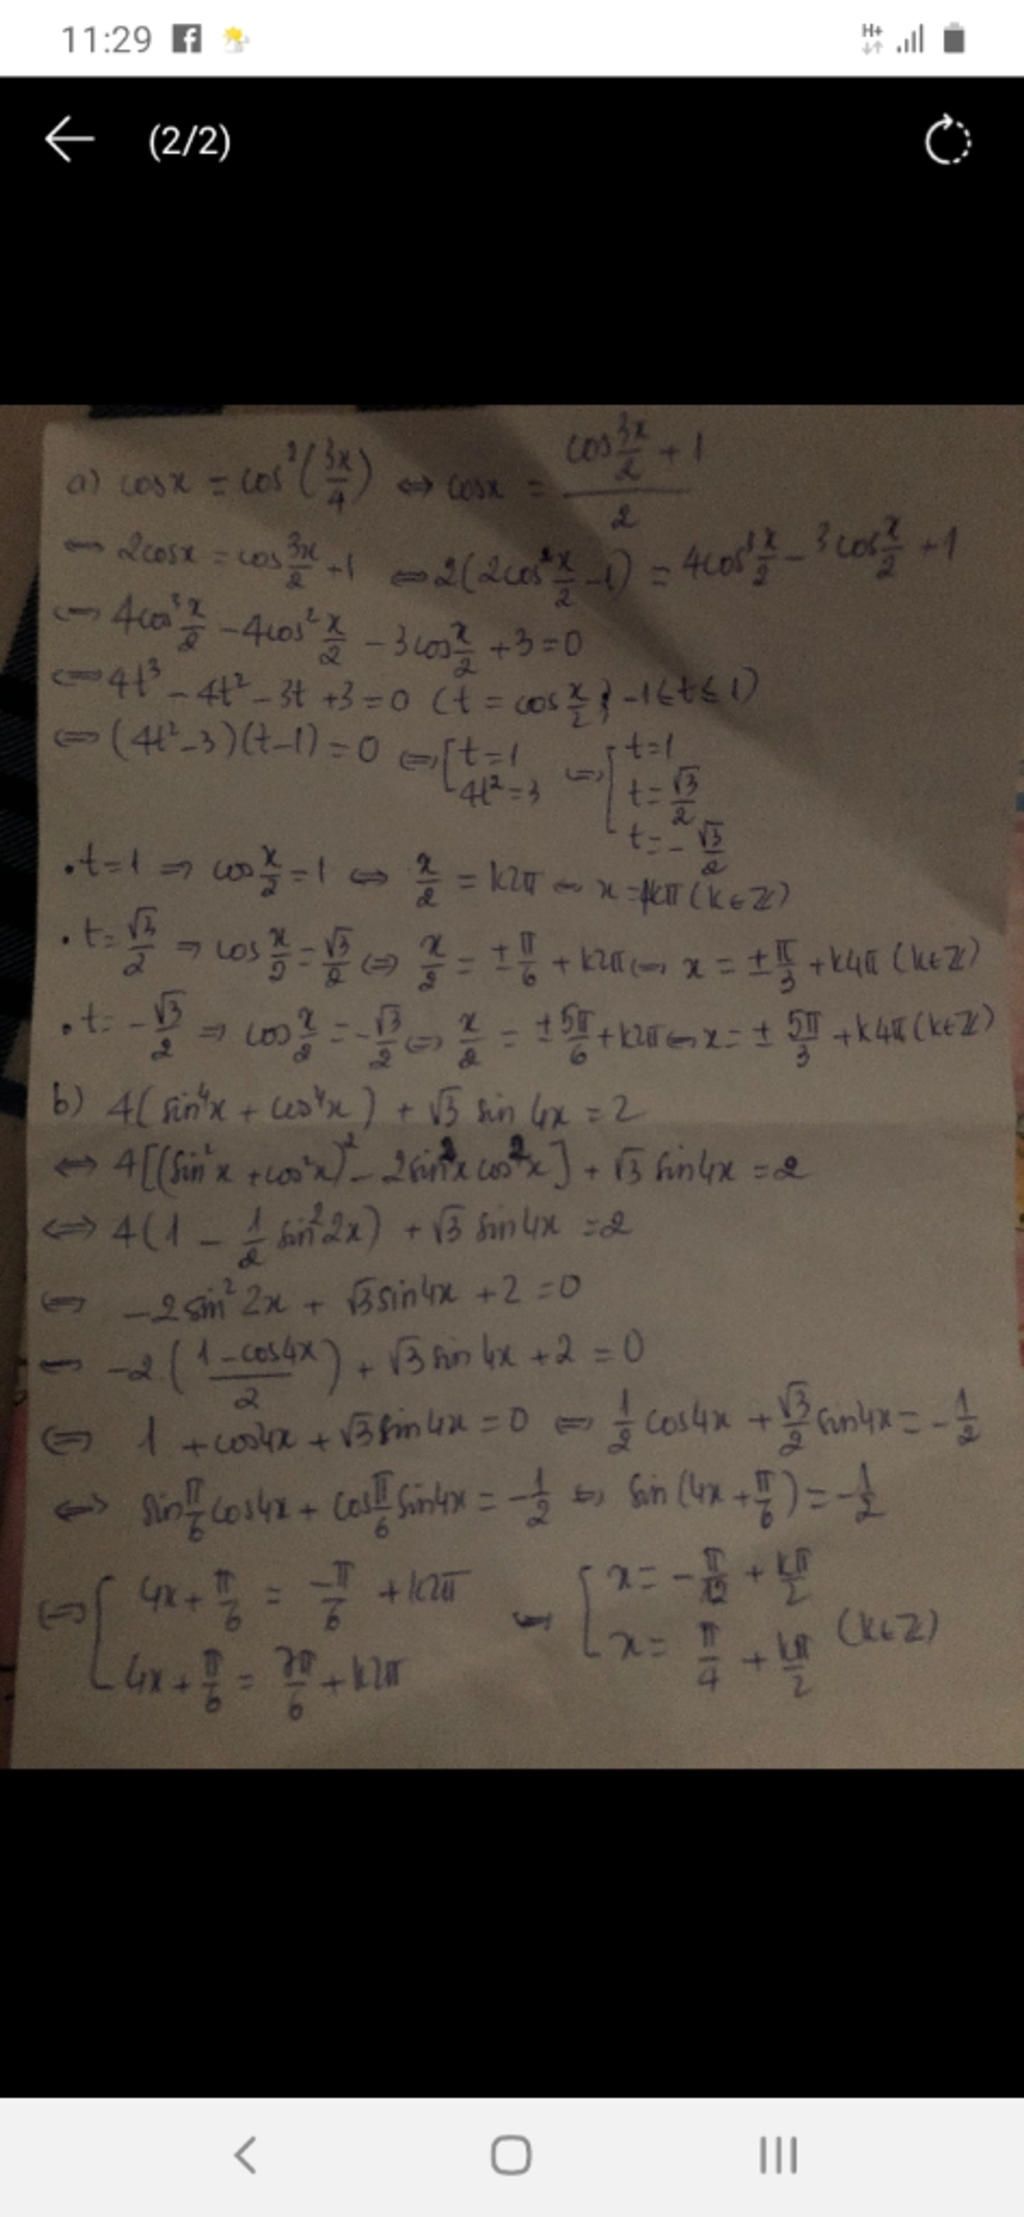 11:29
H+
(2/2)
a) cosx = cos²(3x/4) ⇔ cosx = (cos 3x/2 + 1)/2
⇔ 2cosx = cos 3x/2 + 1 ⇔ 2(2cos² x/2 - 1) = 4cos³ x/2 - 3cos x/2 + 1
⇔ 4cos³ x/2 - 4cos² x/2 - 3cos x/2 + 3 = 0
⇔ 4t³ - 4t² - 3t + 3 = 0 (t = cos x/2; -1 ≤ t ≤ 1)
⇔ (4t² - 3)(t - 1) = 0 ⇔ [ t = 1 ; 4t² = 3 ⇔ [ t = 1 ; t = √3/2 ; t = -√3/2
• t = 1 ⇒ cos x/2 = 1 ⇔ x/2 = k2π ⇔ x = 4kπ (k ∈ Z)
• t = √3/2 ⇒ cos x/2 = √3/2 ⇔ x/2 = ±π/6 + k2π ⇔ x = ±π/3 + k4π (k ∈ Z)
• t = -√3/2 ⇒ cos x/2 = -√3/2 ⇔ x/2 = ±5π/6 + k2π ⇔ x = ± 5π/3 + k4π (k ∈ Z)
b) 4(sin⁴x + cos⁴x) + √3 sin 4x = 2
⇔ 4[(sin²x + cos²x)² - 2sin²x cos²x] + √3 sin4x = 2
⇔ 4(1 - 1/2 sin²2x) + √3 sin4x = 2
⇔ -2sin²2x + √3sin4x + 2 = 0
⇔ -2.((1 - cos4x)/2) + √3 sin 4x + 2 = 0
⇔ 1 + cos4x + √3sin4x = 0 ⇔ 1/2 cos4x + √3/2 sin4x = -1/2
⇔ sin π/6 cos4x + cos π/6 sin4x = -1/2 ⇔ sin(4x + π/6) = -1/2
⇔ [ 4x + π/6 = -π/6 + k2π ⇔ [ x = -π/12 + kπ/2
4x + π/6 = 7π/6 + k2π x = π/4 + kπ/2 (k ∈ Z)